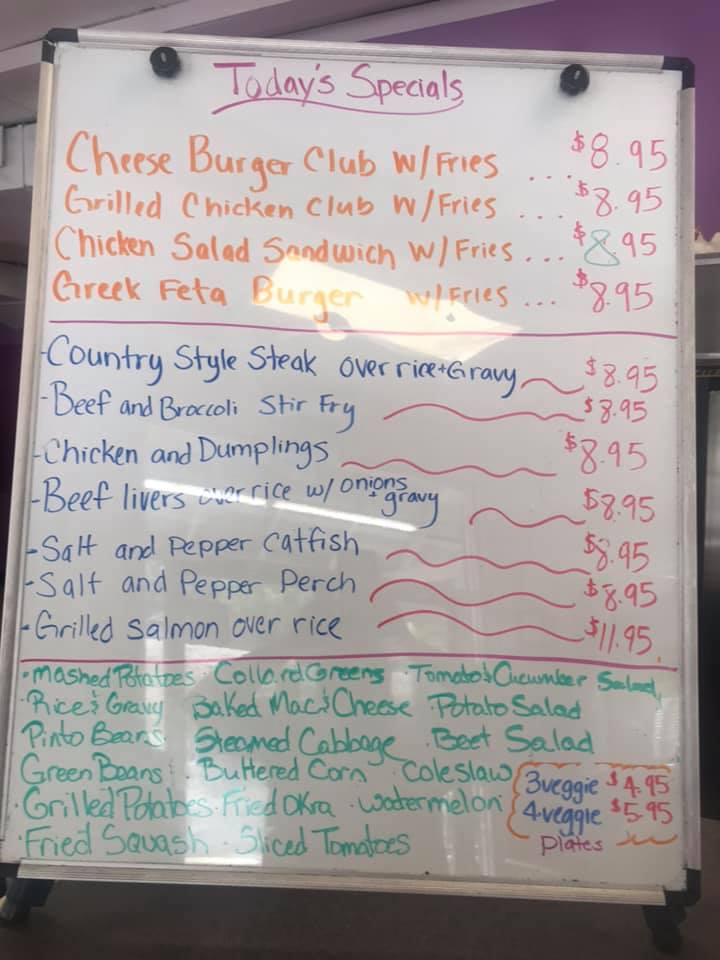 Today's Specials
Cheese Burger Club W/Fries ... $8.95
Grilled Chicken Club W/Fries ... $8.95
Chicken Salad Sandwich W/Fries ... $8.95
Greek Feta Burger W/Fries ... $8.95
-Country Style Steak over rice+Gravy $8.95
-Beef and Broccoli Stir Fry $8.95
-Chicken and Dumplings $8.95
-Beef livers over rice w/ onions + gravy $8.95
-Salt and Pepper Catfish $8.95
-Salt and Pepper Perch $8.95
-Grilled Salmon over rice $11.95
·Mashed Potatoes ·Collard Greens ·Tomato & Cucumber Salad
·Rice & Gravy Baked Mac & Cheese ·Potato Salad
Pinto Beans ·Steamed Cabbage ·Beet Salad
Green Beans ·Buttered Corn ·Coleslaw
·Grilled Potatoes ·Fried Okra ·Watermelon
·Fried Squash ·Sliced Tomatoes
3 veggie $4.95
4 veggie $5.95
Plates